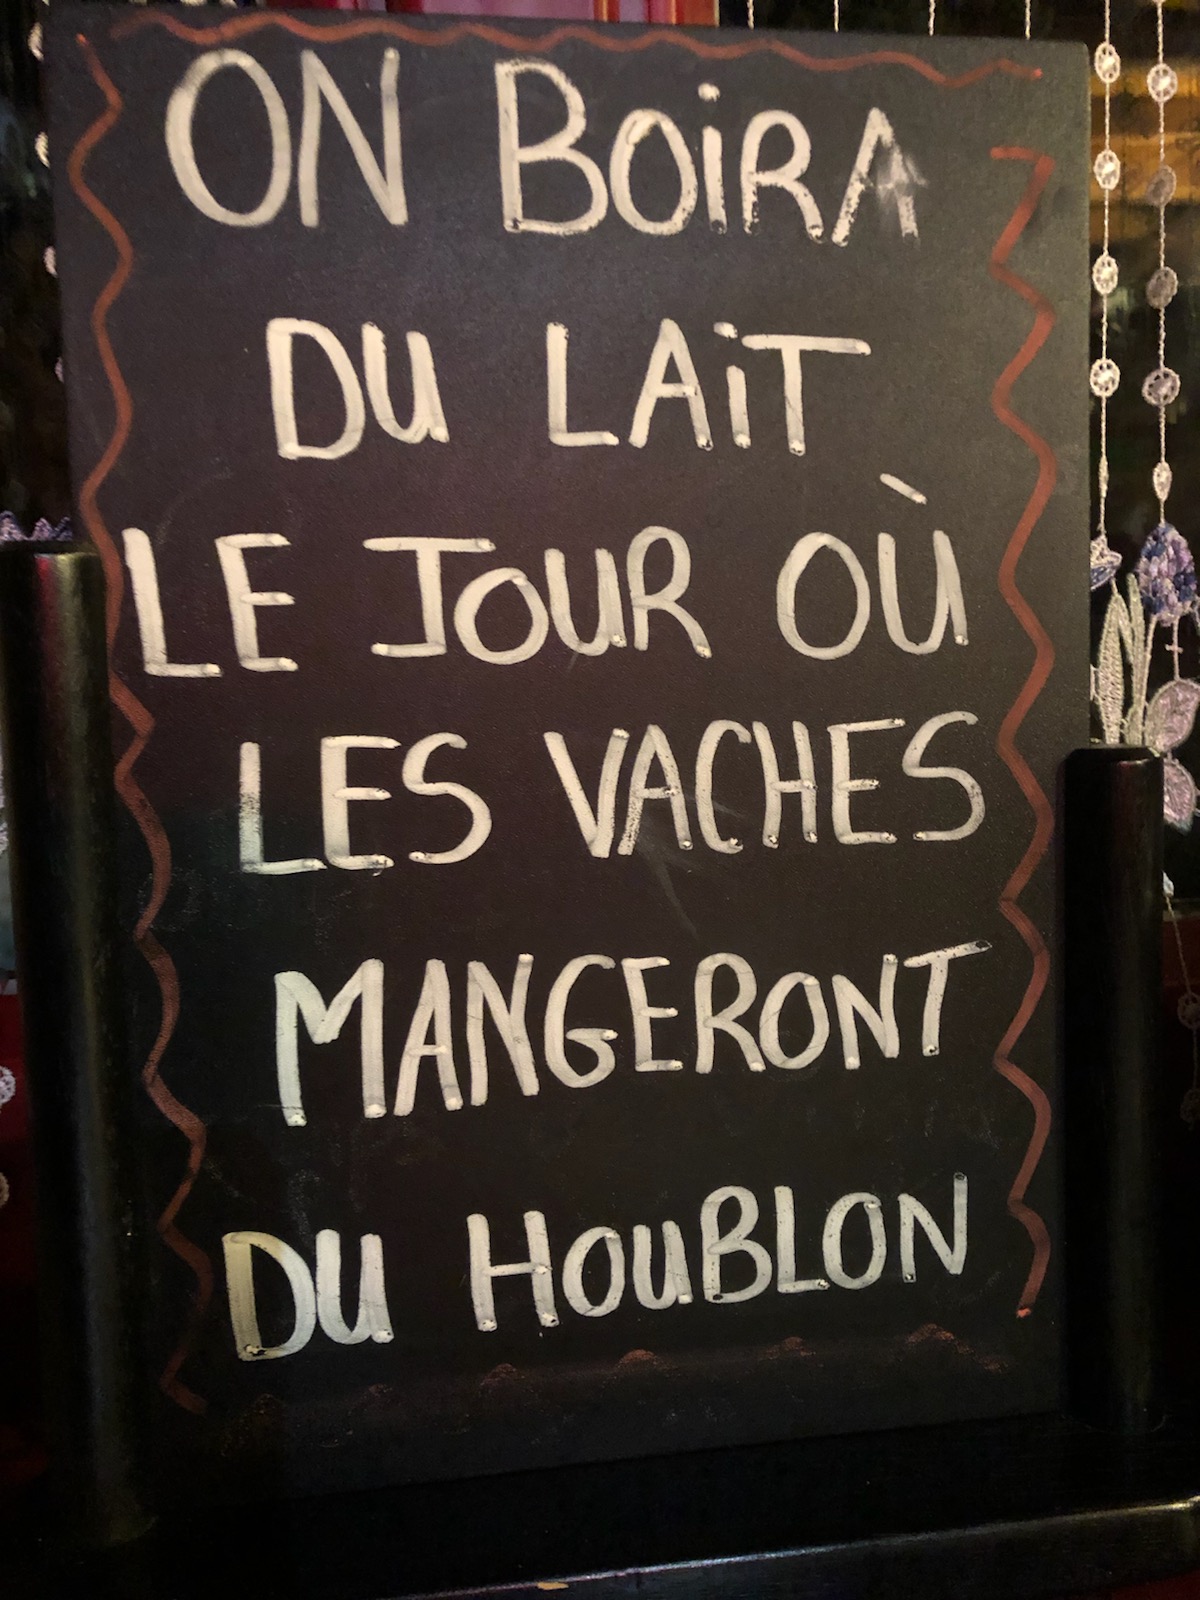 ON BOIRA
DU LAIT
LE JOUR OÙ
LES VACHES
MANGERONT
DU HOUBLON